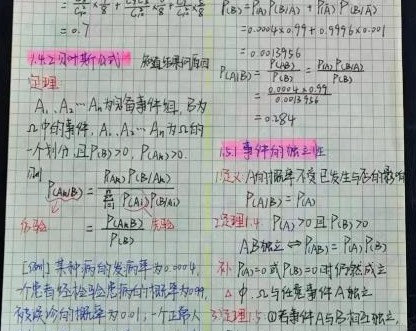 = 0.7
1.4.2 贝叶斯公式 知道结果问原因
定理
A₁, A₂ … Aₙ为完备事件组, B为
Ω中的事件, A₁, A₂ … Aₙ为Ω的
一个划分, 且P(B)>0, P(Aₖ)>0.
则
P(Aₖ/B) = P(Aₖ) P(B/Aₖ) / Σ P(Aᵢ) P(B/Aᵢ)
后验 = P(AₖB) / P(B) 先验
[例] 某种病的发病率为0.0004,
一个患者经检验患病的概率为0.99,
被误诊的概率为0.01; 一个正常人
P(B) = P(A) P(B/A) + P(Ā) P(B/Ā)
= 0.0004×0.99 + 0.9996×0.001
= 0.0013956
P(A|B) = P(AB) / P(B) = P(A) P(B/A) / P(B)
= 0.0004×0.99 / 0.0013956
= 0.284
1.5.1 事件的独立性
1.定义: A的概率不受B发生与否的影响
P(A/B) = P(A)
2.定理1.4 P(A)>0 且 P(B)>0
AB独立 ⇔ P(AB) = P(A) P(B)
补 P(A)=0或P(B)=0时仍然成立
△ φ, Ω与任意事件A独立
3)定理1.5 ①若事件A与B相互独立,